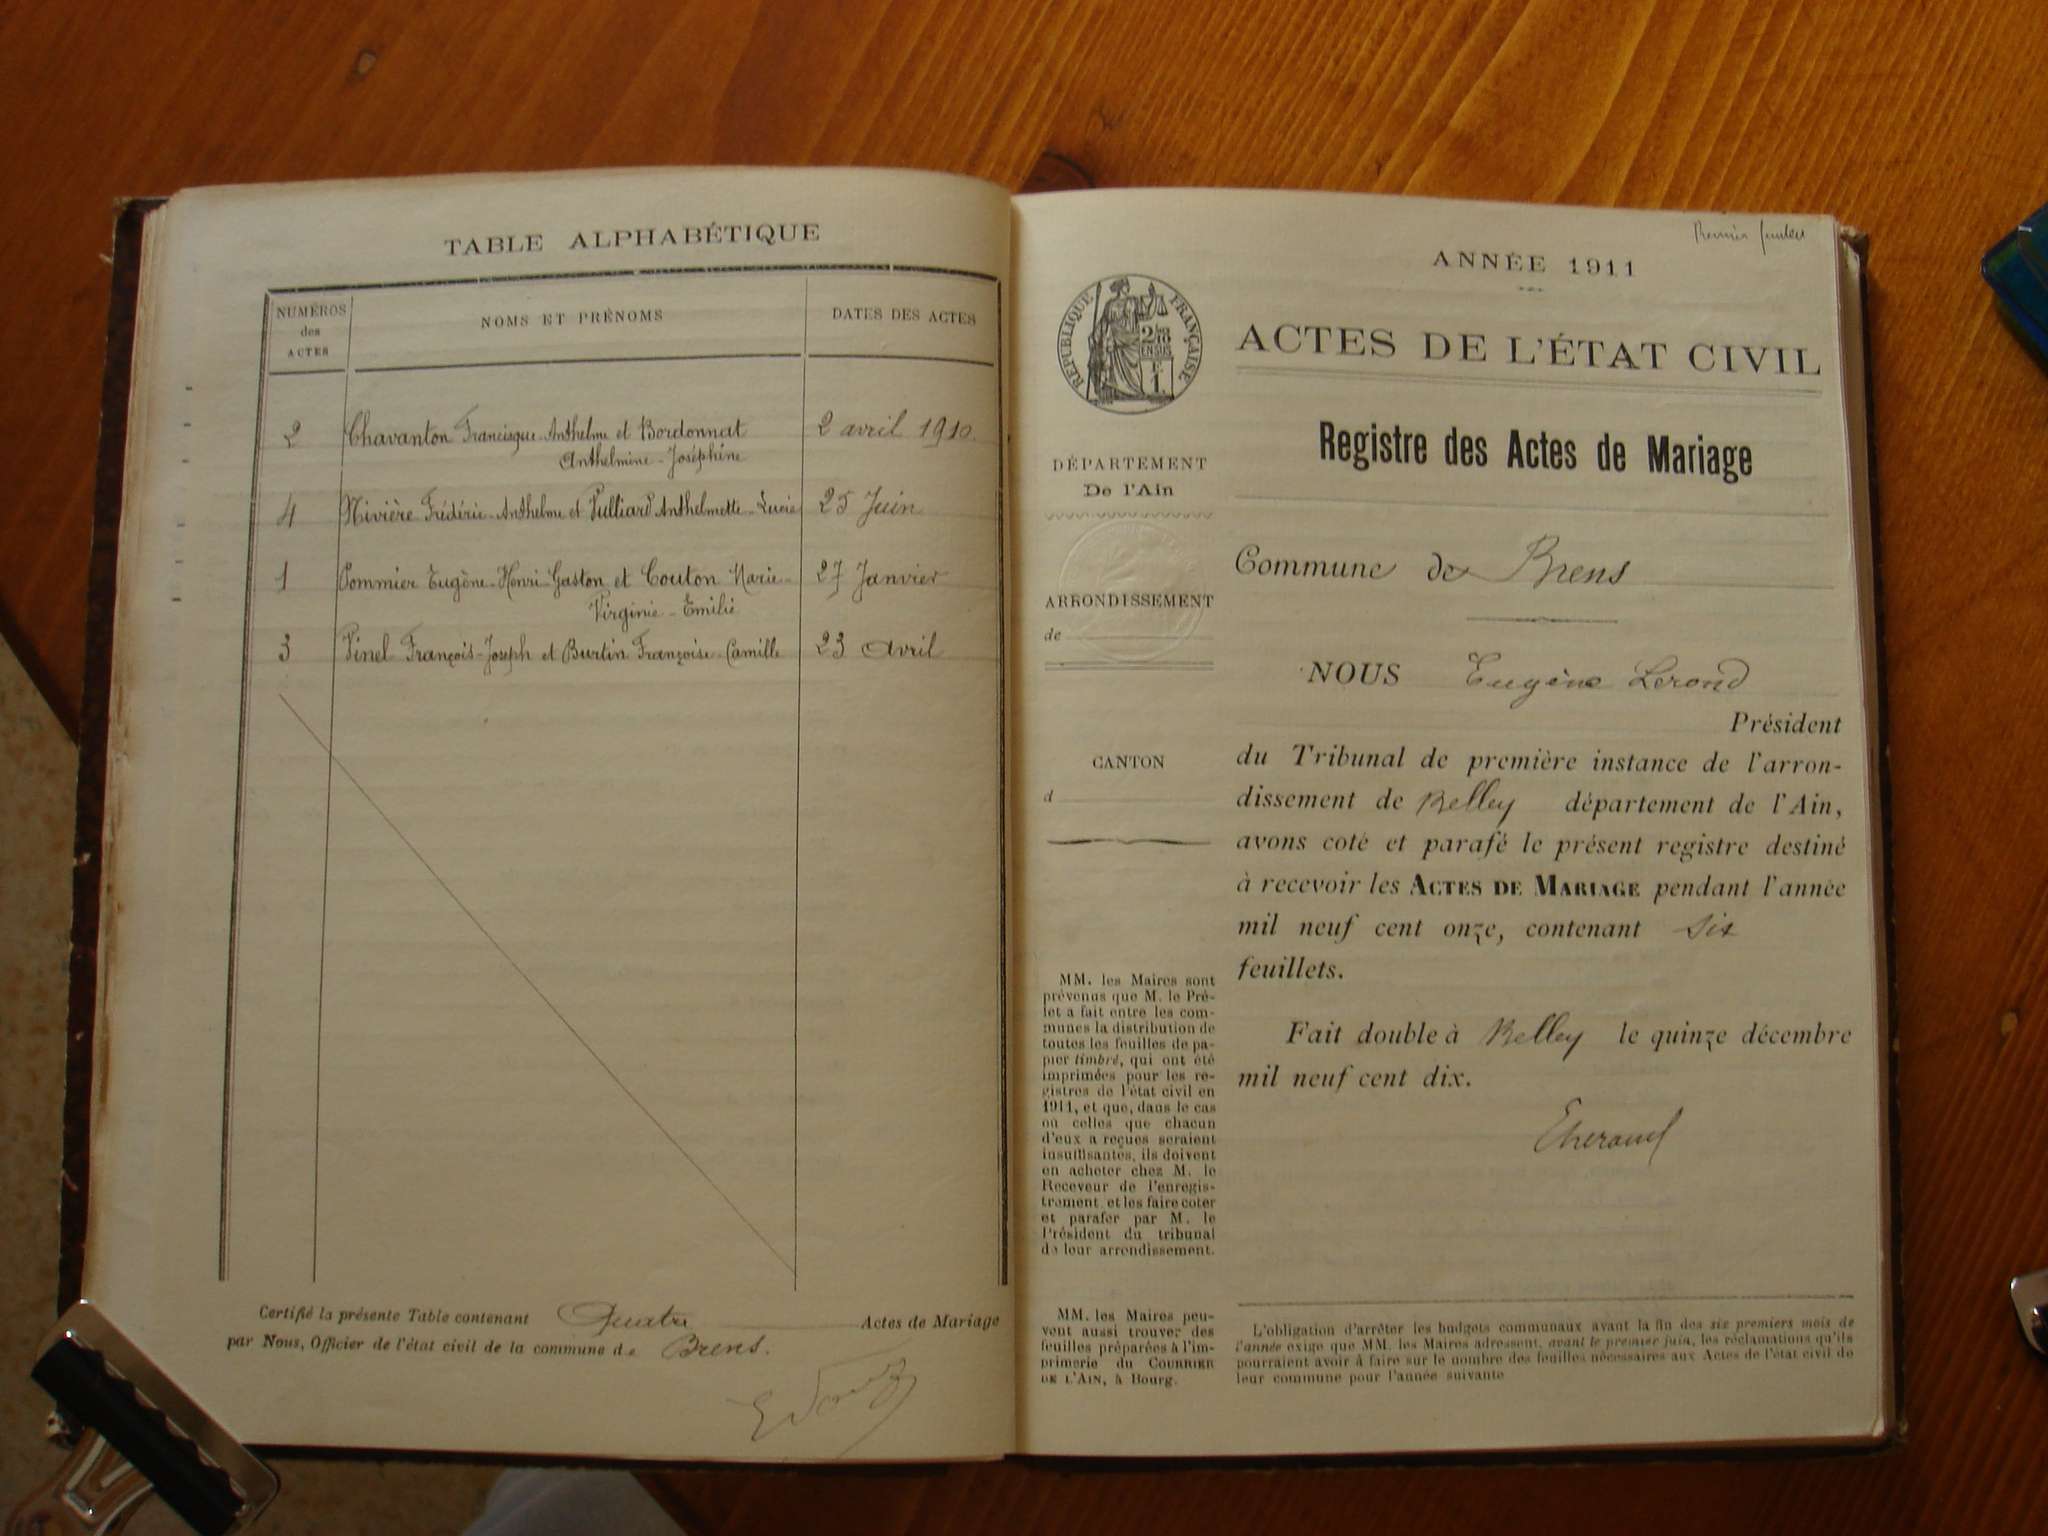 TABLE ALPHABÉTIQUE
NUMÉROS
des
ACTES
NOMS ET PRÉNOMS
DATES DES ACTES
2 Chavanton Francisque-Anthelme et Bordonnat 2 avril 1910.
Anthelmine-Joséphine
4 Nivière Frédéric-Anthelme et Pulliard Anthelmette-Lucie 25 Juin
1 Pommier Eugène-Henri-Gaston et Couton Marie- 27 Janvier
Virginie-Emilie
3 Pinel François-Joseph et Burtin Françoise-Camille 23 avril
Certifié la présente Table contenant Quatre Actes de Mariage
par Nous, Officier de l'état civil de la commune de Brens.
Premier feuillet
ANNÉE 1911
RÉPUBLIQUE FRANÇAISE
EN SUS
ACTES DE L'ÉTAT CIVIL
Registre des Actes de Mariage
DÉPARTEMENT
De l'Ain
Commune de Brens
ARRONDISSEMENT
de
NOUS Eugène Lerond
Président
du Tribunal de première instance de l'arron-
dissement de Belley département de l'Ain,
avons coté et parafé le présent registre destiné
à recevoir les ACTES DE MARIAGE pendant l'année
mil neuf cent onze, contenant six
feuillets.
Fait double à Belley le quinze décembre
mil neuf cent dix.
CANTON
d
MM. les Maires sont
prévenus que M. le Pré-
fet a fait entre les com-
munes la distribution de
toutes les feuilles de pa-
pier timbré, qui ont été
imprimées pour les re-
gistres de l'état civil en
1911, et que, dans le cas
où celles que chacun
d'eux a reçues seraient
insuffisantes, ils doivent
en acheter chez M. le
Receveur de l'enregis-
trement et les faire coter
et parafer par M. le
Président du tribunal
de leur arrondissement.
MM. les Maires peu-
vent aussi trouver des
feuilles préparées à l'im-
primerie du COURRIER
DE L'AIN, à Bourg.
L'obligation d'arrêter les budgets communaux avant la fin des six premiers mois de
l'année exige que MM. les Maires adressent, avant le premier juin, les réclamations qu'ils
pourraient avoir à faire sur le nombre des feuilles nécessaires aux Actes de l'état civil de
leur commune pour l'année suivante